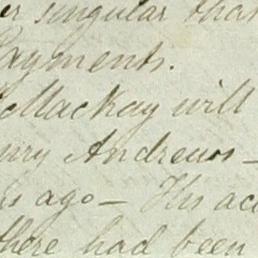 er singular than
Payments.
McMackay will
Andrews —
ago — His acc
there had been